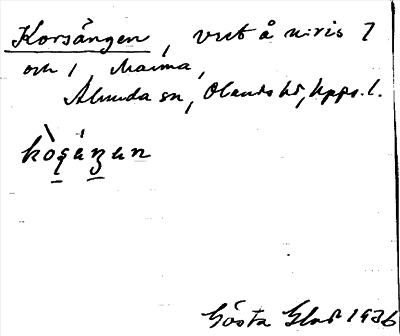 Korsängen, vret å n:ris 7
och 1 Marma,
Almunda sn, Olands hd, Upps. l.
kò̱şáŋ̱an
Gösta Glad 1936